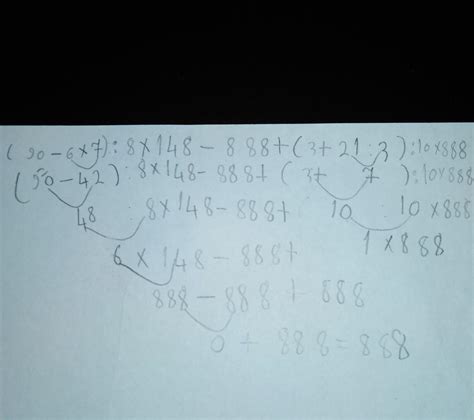 (90-6×7):8×148-888+(3+21:3):10×888
(90-42):8×148-888+(3+7):10×888
48 8×148-888+ 10 10×888
6×148-888+ 1×888
888-888+888
0+888=888